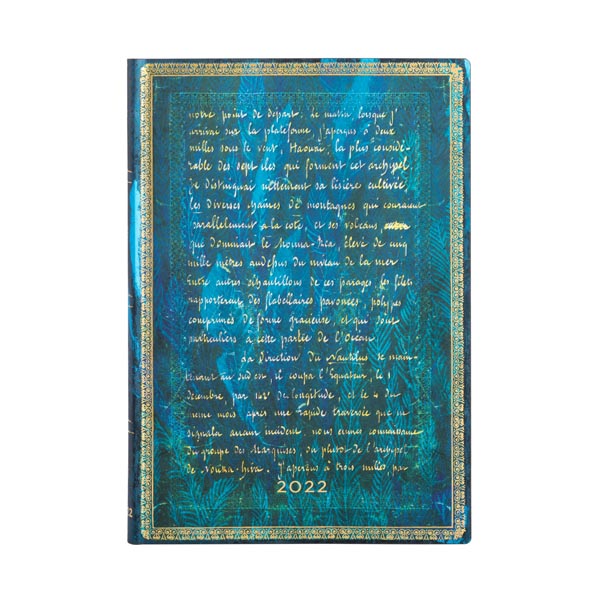 notre point de départ. Le matin, lorsque j'
arrivai sur la plateforme, j'aperçus à deux
milles sous le vent, Haouaï, la plus considé-
rable des sept iles qui forment cet archipel.
Je distinguai nettement sa lisière cultivée
les diverses chaines de montagnes qui courent
parallelement à la cote, et ses volcans
que dominait le Mouna-Rea, élevé de cinq
mille mètres audessus du niveau de la mer.
Entre autres échantillons de ces parages, les filets
rapporterent des flabellaires pavonées, polypes
comprimés de forme gracieuse, et qui sont
particuliers à cette partie de l'Océan
La direction du Nautilus se main-
tenant au sud est, il coupa l'Equateur, le 1
décembre, par 142° de longitude, et le 4 du
meme mois après une rapide traversée que ne
signala aucun incident nous eumes connaissance
du groupe des Marquises, ou plutot de l'archipel
de Nouka-hiva. J'aperçus à trois milles, par
2022
2